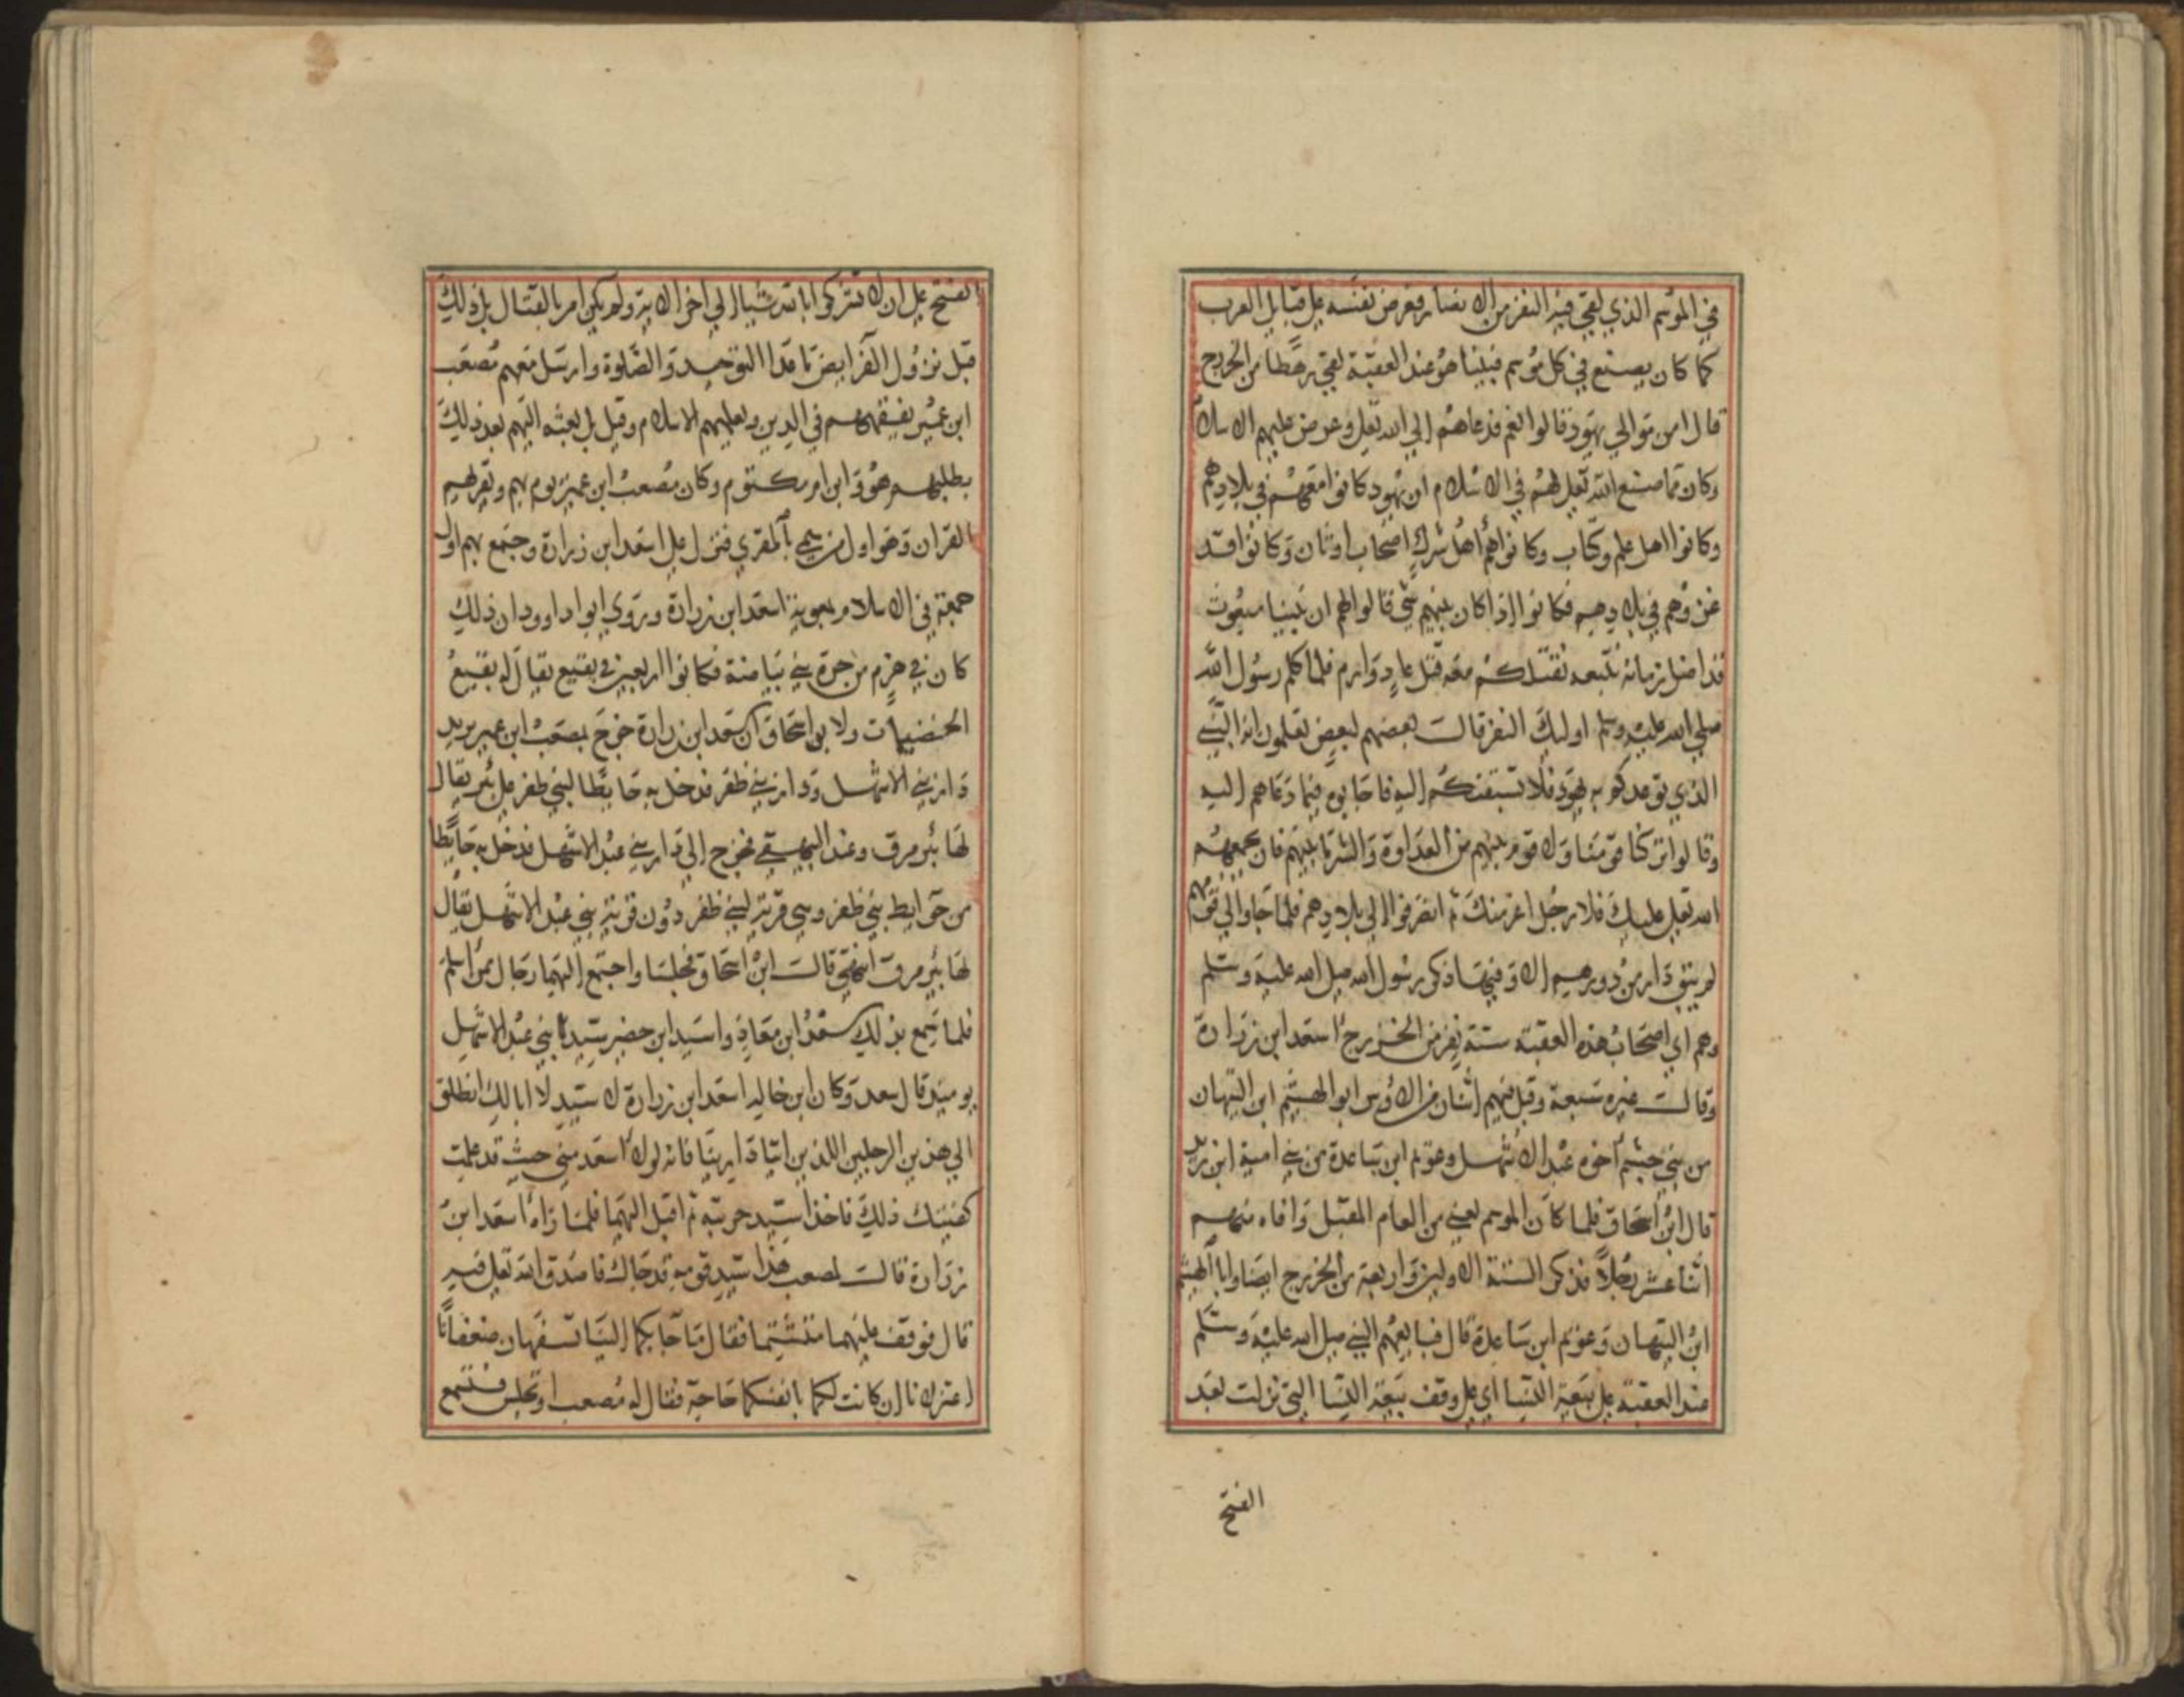 في الموسم الذي لقي فيه النفر من الانصار فعرض نفسه على قبايل العرب
كما كان يصنع في كل موسم فبينا هو عند العقبة لقي رهطا من الخزرج
قال امن موالي يهود قالوا نعم فدعاهم الي الله تعلى وعرض عليهم الاسلام
وكان مما صنع الله تعلى لهم في الاسلام ان يهود كانوا معهم في بلادهم
وكانوا اهل علم وكتاب وكانوا هم أهل شرك اصحاب اوثان وكانوا قد
غزوهم في بلادهم فكانوا اذا كان بينهم شي قالوا لهم ان نبينا مبعوث
قد اضل زمانه نتبعه نقتلكم معه قتل عاد وارم فلما كلم رسول الله
صلى الله عليه وسلم اوليك النفر قالت بعضهم لبعض تعلمون انه النبي
الذي توعدكم به يهود فلا تسبقنكم اليه فاجابوه فيما دعاهم اليه
وقالوا تركنا قومنا ولا قوم بينهم من العداوة والشر ما بينهم فان يجمعهم
الله تعلى عليك فلا رجل اعز منك ثم انصرفوا الي بلادهم فلما جاوا الي قومهم
لم يبق دار من دورهم الا وفيها ذكر رسول الله صلى الله عليه وسلم
وهم اي اصحاب هذه العقبة ستة نفر من الخزرج اسعد ابن زرارة
وقالت غيره سبعة وقيل فيهم اثنان من الاوس ابو الهشيم ابن التيهان
من بني جشم أخوه عبد الاشهل وعويم ابن ساعدة من بني امية ابن زيد
قال ابن اسحاق فلما كان الموسم يعني من العام المقبل وافاه منهم
اثنا عشر رجلاً فذكر الستة الاولين واربعة من الخزرج ايضا وابا الهشيم
ابن التيهان وعويم ابن ساعدة قال فبايعهم النبي صلى الله عليه وسلم
عند العقبة على بيعة النسا اي على وقف بيعة النسا التي نزلت بعد
الفتح
الفتح على ان لا تشركوا بالله شيا الي اخر الاية ولم يكن امر بالقتال بل ذلك
قبل نزول الفرايض ما عدا التوحيد والصلوة وارسل معهم مصعب
ابن عمير يفقههم في الدين ويعلمهم الاسلام وقيل بل بعثه اليهم بعد ذلك
بطلبهم هو وابن ام مكتوم وكان مصعب ابن عمير يوم بهم ويقريهم
القران وهو اول من سمي بالمقري فنزل على اسعد ابن زرارة وجمع بهم اول
جمعة في الاسلام بمعونة اسعد ابن زرارة وروي ابو داوود ان ذلك
كان في هزم من حرة بني بياضة فكانوا اربعين في بقيع يقال له بقيع
الخضيمات ولابن اسحاق ان اسعد ابن زرارة خرج بمصعب ابن عمير يريد
دار بني الاشهل ودار بني ظفر فدخل به حايطا لبني ظفر على بير يقال
لها بير مرق وعند البيهقي فخرج الي دار بني عبد الاشهل فدخل به حايطا
من حوايط بني ظفر وهي قرية لبني ظفر دون قرية بني عبد الاشهل يقال
لها بير مرق انتهى قالت ابن اسحاق فجلسا واجتمع اليهما رجال ممن اسلم
فلما سمع بذلك سعد ابن معاذ واسيد ابن حضير سيدا بني عبد الاشهل
يوميذ قال سعد وكان ابن خاله اسعد ابن زرارة لا سيد لا ابا لك انطلق
الي هذين الرجلين اللذين اتيا دارينا فانه لولا اسعد مني حيث قد علمت
كفيتك ذلك فاخذ اسيد حربته ثم اقبل اليهما فلما راه اسعد ابن
زرارة قالت لمصعب هذا سيد قومه قد جاك فاصدق الله تعلى فيه
قال فوقف عليهما متشتما فقال ما جا بكما الينا تسفهان ضعفانا
اعتزلانا ان كانت لكما بانفسكما حاجة فقال له مصعب اوتجلس فتسمع